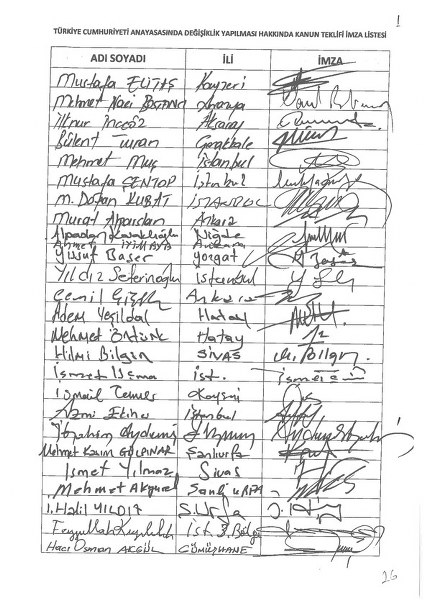 1
TÜRKİYE CUMHURİYETİ ANAYASASINDA DEĞİŞİKLİK YAPILMASI HAKKINDA KANUN TEKLİFİ İMZA LİSTESİ
ADI SOYADI İLİ İMZA
Mustafa ELİTAŞ Kayseri
Mehmet Naci
İlknur İNCEÖZ Aksaray
Bülent Turan Çanakkale
Mehmet Muş İstanbul
Mustafa ŞENTOP İstanbul
M. Doğan KUBAT İSTANBUL
Murat Alparslan Ankara
Alpaslan Kavaklıoğlu Niğde
Ahmet İYİMAYA Ankara
Yusuf Başer Yozgat
Yıldız Seferinoğlu İstanbul
Ankara
Adem Yeşildal Hatay
Mehmet Öntürk Hatay
Hilmi Bilgin SİVAS M. Bilgin
İsmet Uçma İst.
İsmail Tamer Kayseri
Azmi Ekinci İstanbul
İbrahim Aydemir
Mehmet Kasım GÜLPINAR Şanlıurfa
İsmet Yılmaz Sivas
Mehmet Akyürek ŞanlıURFA
İ. Halil YILDIZ Ş.Urfa
Feyzullah Kıyıklık İst. 3. Bölge
Hacı Osman AKGÜL GÜMÜŞHANE
26